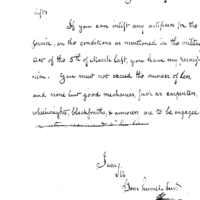 If you can inlist any artificers for the
service, on the conditions as mentioned in the military
Act of the 5th of March last, you have my permis-
sion. You must not exceed the number of ten
and none but good mechanics, such as carpenters,
wheelwrights, blacksmiths, & armorers are to be engaged
I am,
Sir
Your humble Servt.